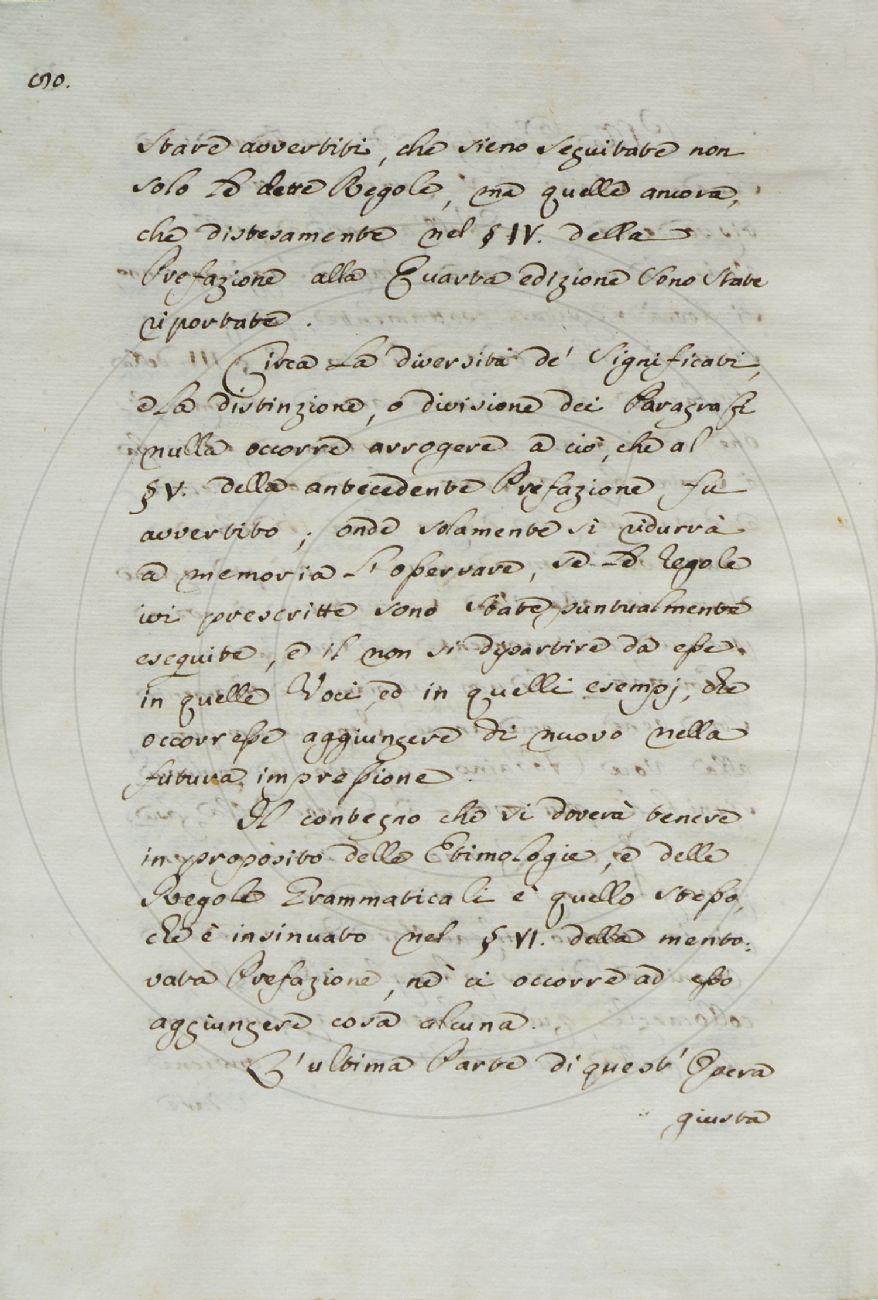 90.
stare avvertiti, che sieno seguitate non
solo le dette Regole, ma quelle ancora,
che distesamente nel § IV. della
Prefazione alla Quarta edizione sono state
riportate.
Circa la diversità de' significati,
e la distinzione, o divisione dei Paragrafi
nulla occorre arrogere a ciò, che al
§ V. della antecedente Prefazione fu
avvertito; onde solamente si ridurrà
a memoria l'osservare, se le regole
ivi prescritte sono state puntualmente
eseguite, e il non si dipartire da esse
in quelle Voci, ed in quelli esempj, che
occorresse aggiungere di nuovo nella
futura impressione.
Il contegno che si doverà tenere
in proposito delle Etimologie, e delle
Regole Grammaticali è quello stesso,
che è insinuato nel § VI. della mento:
vata Prefazione, nè ci occorre ad esso
aggiungere cosa alcuna.
L'ultima Parte di quest' Opera
giusta